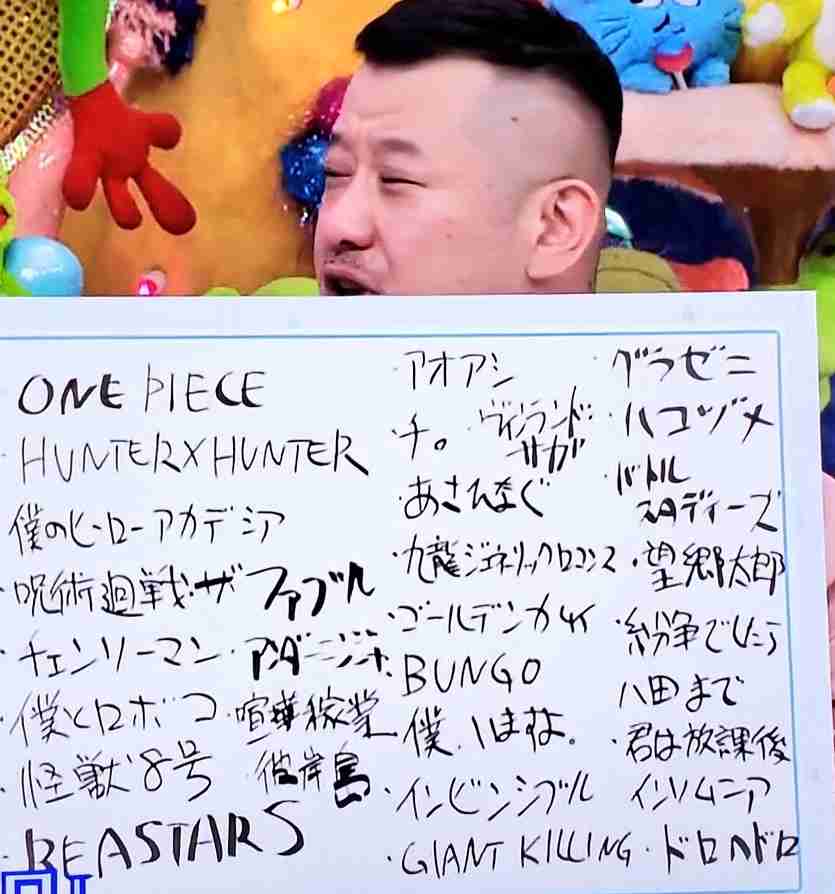 ONE PIECE
HUNTER×HUNTER
僕のヒーローアカデミア
・呪術廻戦・ザ ファブル
・チェンソーマン・アンダーニンジャ
・僕とロボコ・喧嘩稼業
・怪獣8号 彼岸島
・BEASTARS
・アオアシ
・チ。 ヴィンランド
サガ
・あさひなぐ
・九龍ジェネリックロマンス
・ゴールデンカムイ
BUNGO
・僕、いますよ。
・インビンシブル
・GIANT KILLING
・グラゼニ
・ハコヅメ
・バトル
スタディーズ
・望郷太郎
・紛争でしたら
八田まで
・君は放課後
インソムニア
・ドロヘドロ